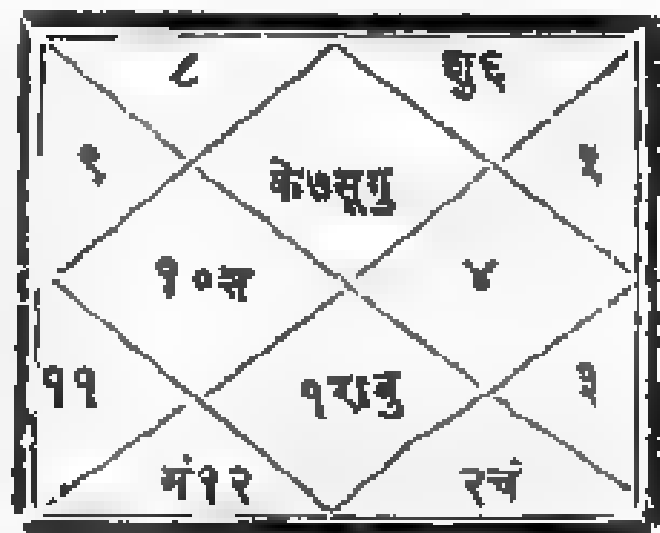 ८ शु६
९ ५
के७सूगु
१०स ४
११ १राबु ३
मं१२ २चं